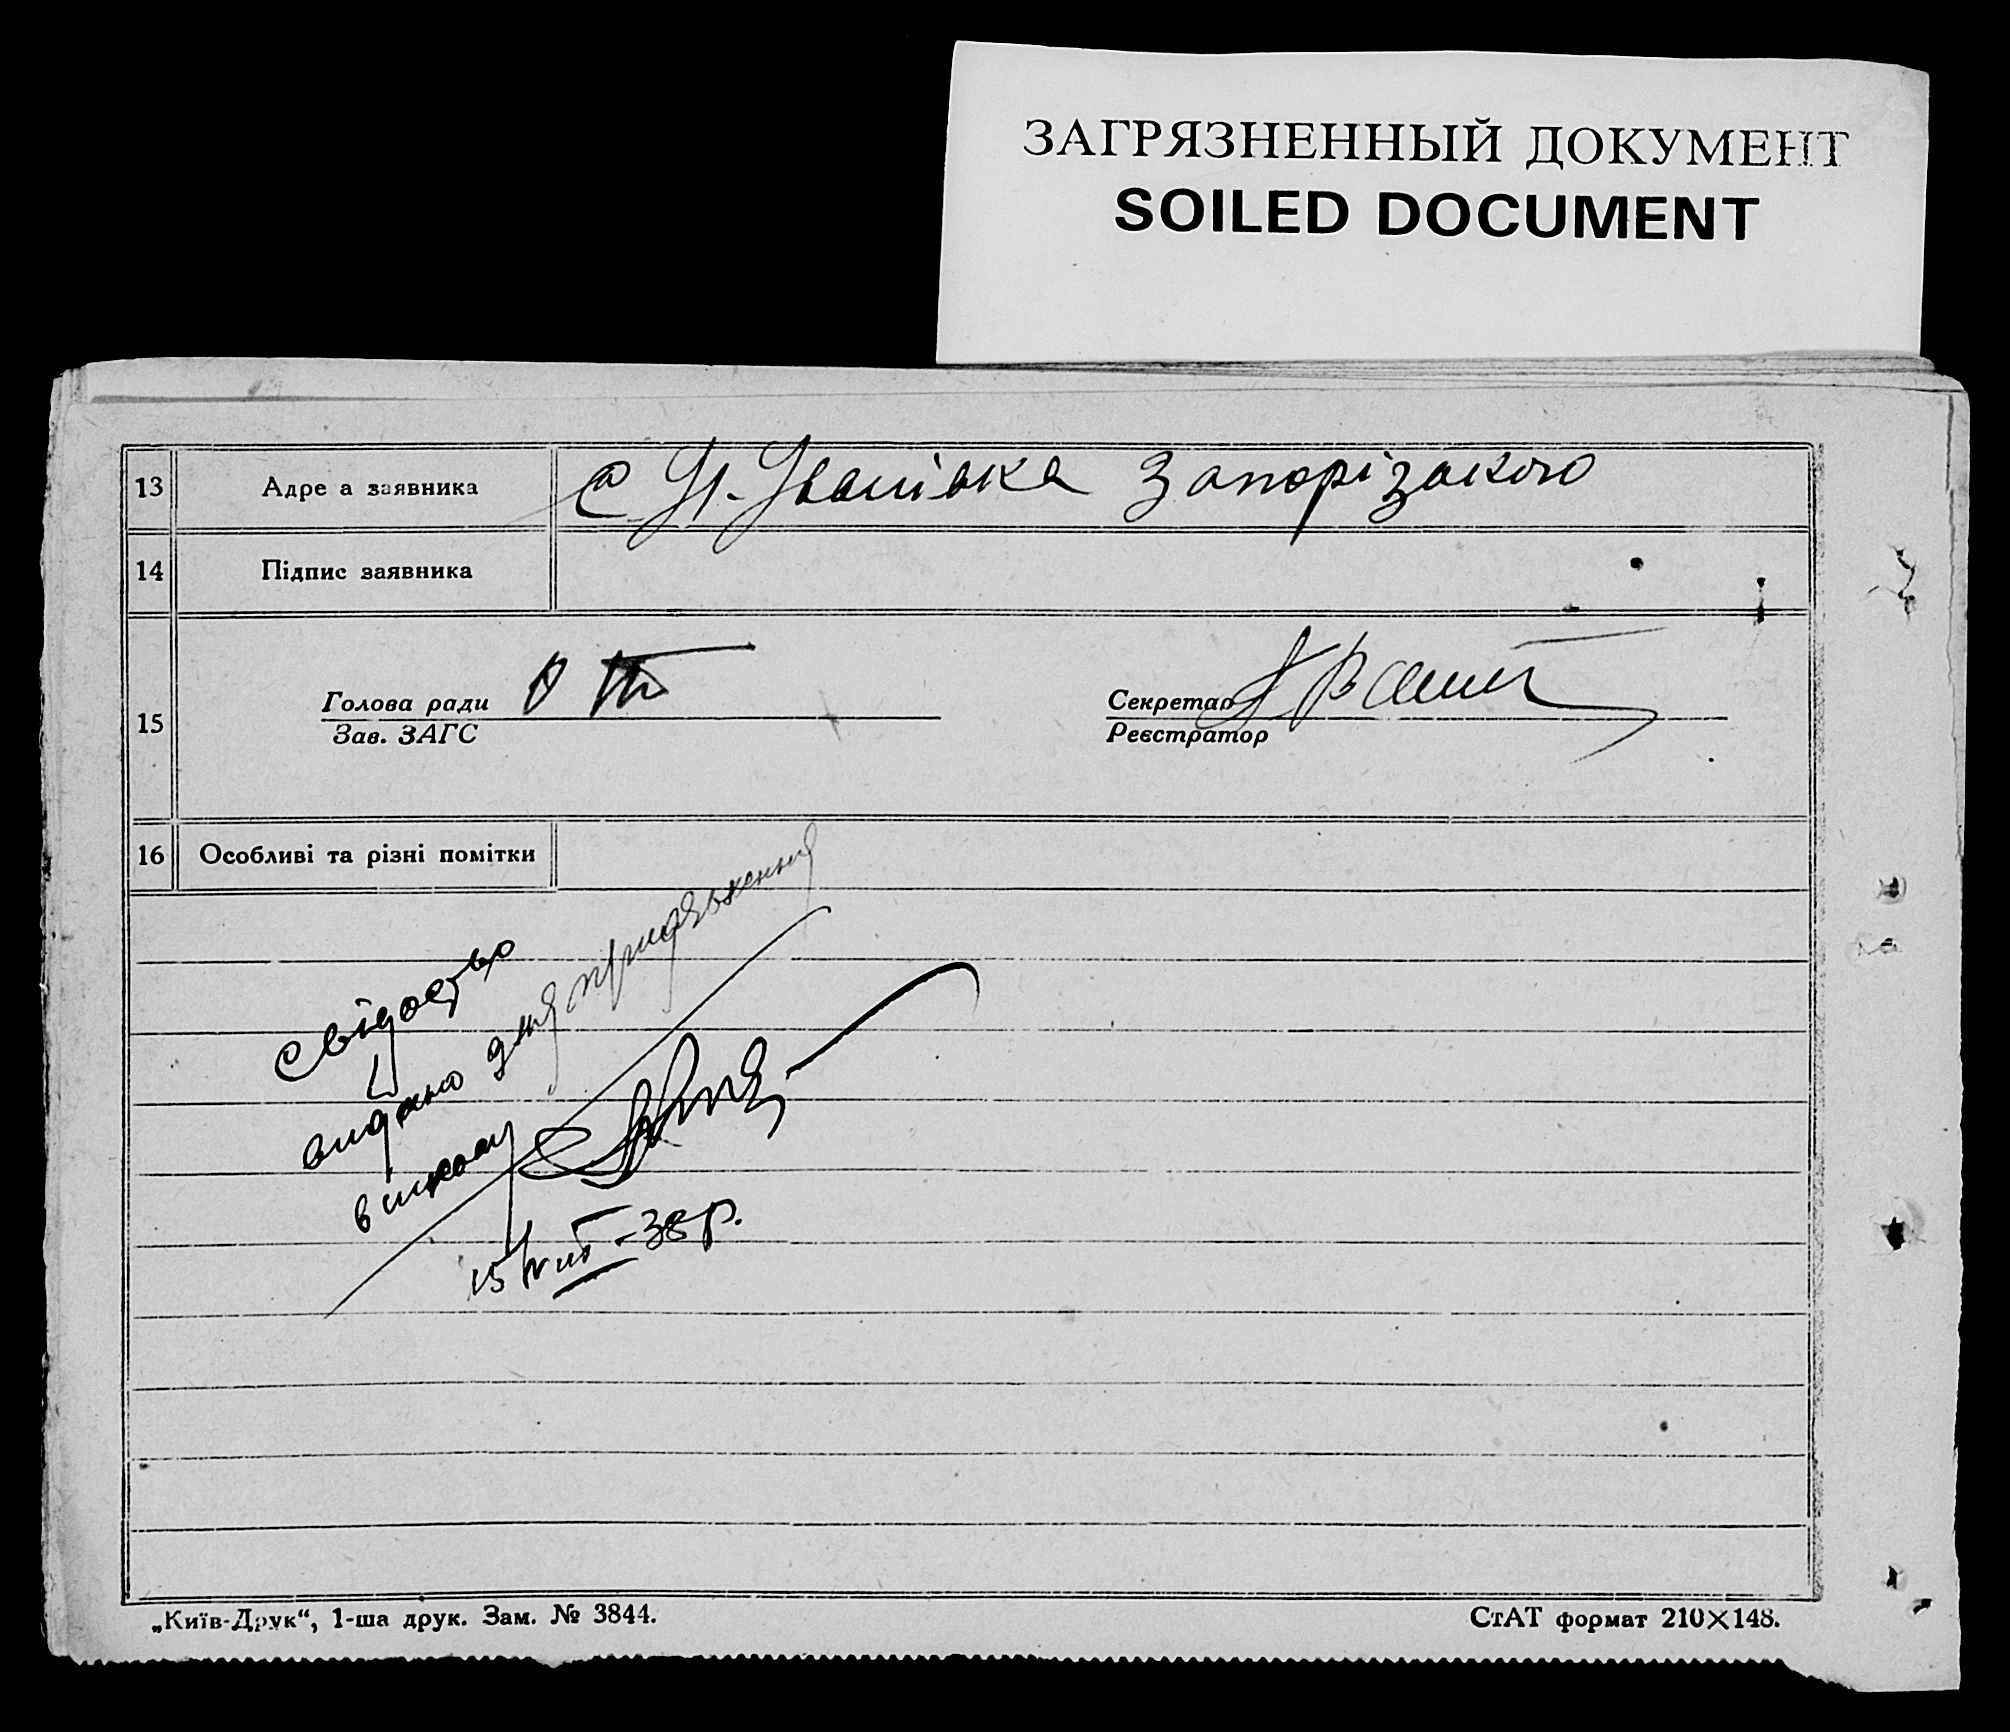 ЗАГРЯЗНЕННЫЙ ДОКУМЕНТ
SOILED DOCUMENT
13 Адре а заявника с Н-Іванівка Запорізького
14 Підпис заявника
15 Голова ради
Зав. ЗАГС
Секретар
Реєстратор
16 Особливі та різні помітки
свідоство
видано для
в школу
15/VIII-38р.
„Київ-Друк“, 1-ша друк. Зам. № 3844.
СтАТ формат 210×148.